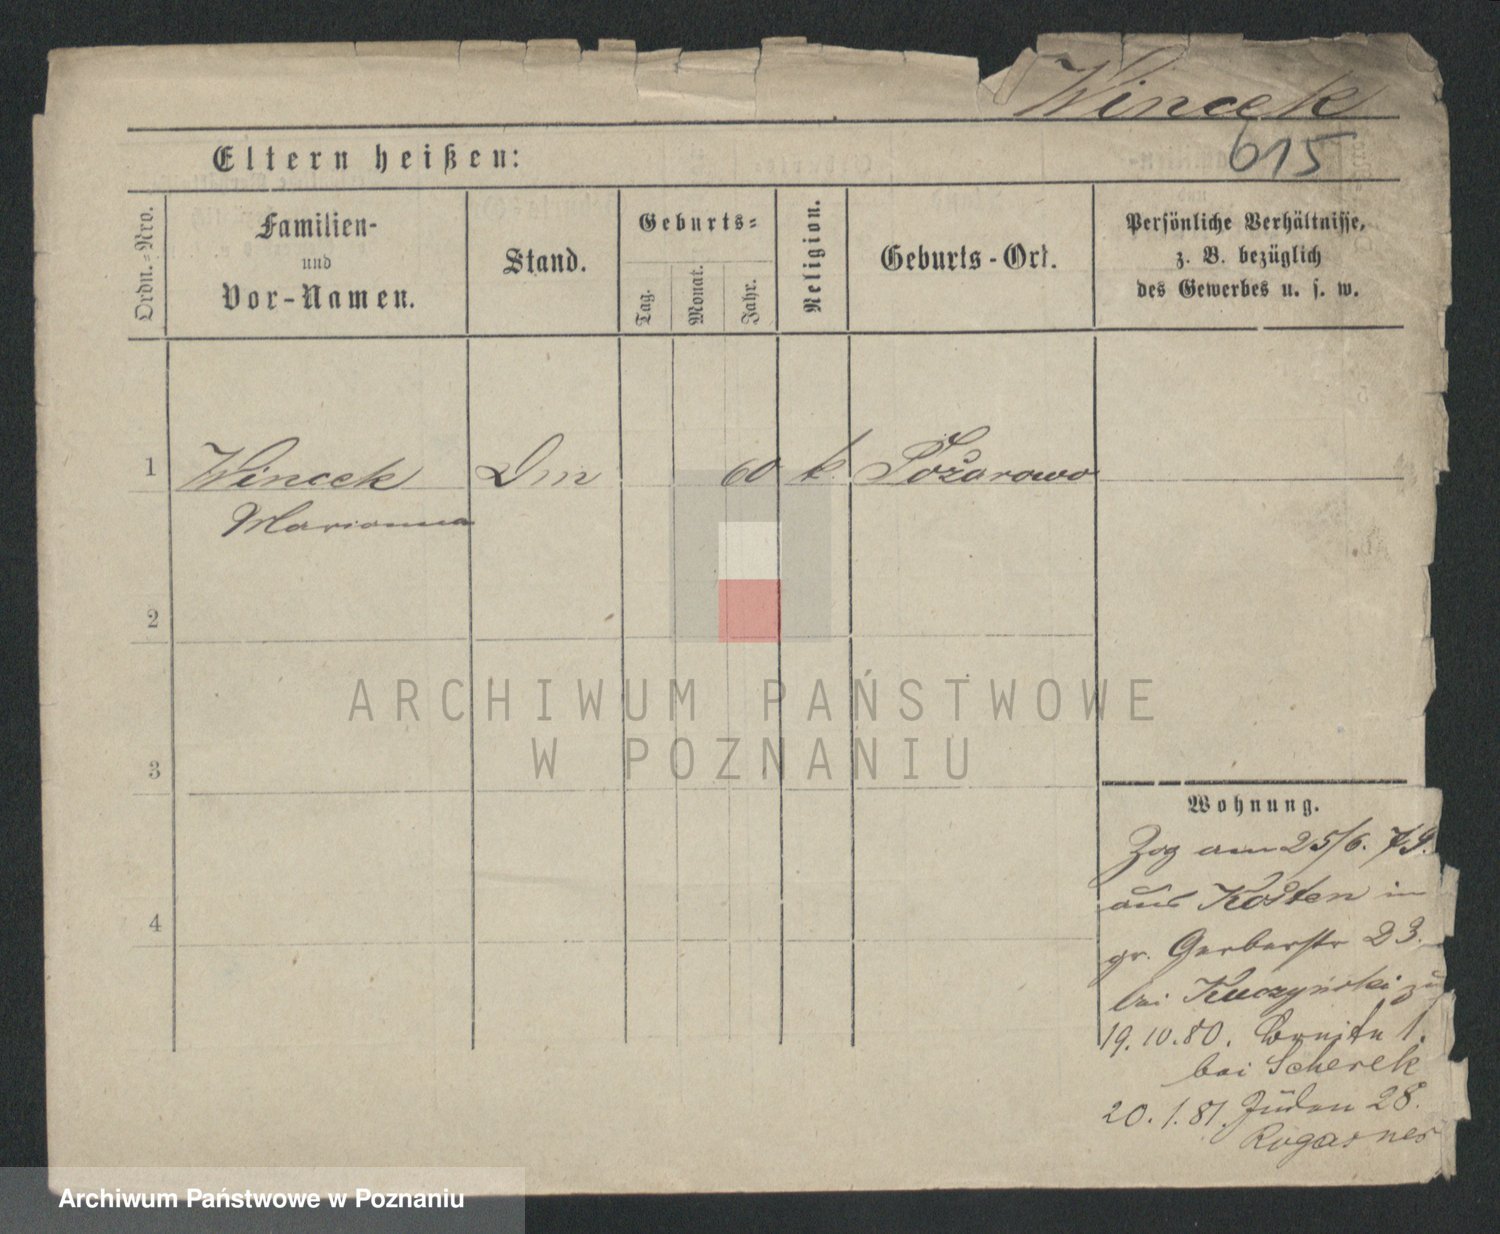 Wincek
615
Eltern heißen:
Ordn.-Nro.
Familien-
und
Vor-Namen.
Stand.
Geburts-
Tag.
Monat.
Jahr.
Religion.
Geburts-Ort.
Persönliche Verhältnisse,
z. B. bezüglich
des Gewerbes u. s. w.
1 Wincek Dm 60 k. Pożarowo
Marianna
2
3
4
ARCHIWUM PAŃSTWOWE
W POZNANIU
Wohnung.
Zog am 25/6. 79.
aus Kosten in
gr. Gerberstr 23.
bei Kuczyński zu
19.10.80. Breite 1.
bei Scherek
20.1.81. Juden 28.
Rogasner
Archiwum Państwowe w Poznaniu